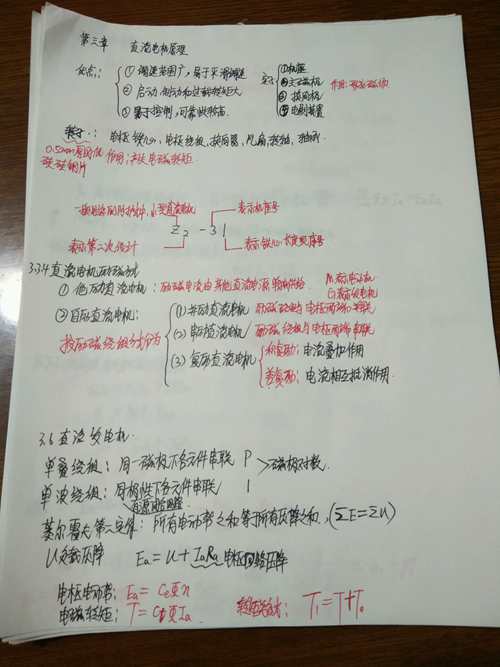 第三章 直流电机原理
优点: ① 调速范围广，易于平滑调速 定子 ① 机座
② 启动、制动和过载转矩大 ② 主磁极 作用：
③ 易于控制，可靠性较高 ③ 换向极
④ 电刷装置
转子: 电枢铁心，电枢绕组，换向器，风扇，转轴，轴承
0.5mm 硅钢片 作用：产生电磁转矩
直流电机 表示机座号
Z2-31
表示第二次设计 表示铁心长度序号
3.3.4 直流电机励磁方式
① 他励直流电机：励磁电流由其他直流电源 M表示电动机
G表示发电机
② 自励直流电机： (1) 并励直流电机 励磁绕组与电枢两端并联
按励磁绕组方式分为 (2) 串励直流电机 励磁绕组与电枢两端串联
(3) 复励直流电机 积复励：电流叠加作用
差复励：电流相互抵消作用
3.6 直流发电机
单叠绕组：同一磁极下各元件串联 P 磁极对数
单波绕组：同极性下各元件串联 1
基尔霍夫第二定律：所有电动势之和等于所有压降之和，(ΣE=ΣU)
U负载压降 Ea = U + IaRa 电枢回路压降
电枢电动势：Ea = CeΦn
电磁转矩：T = CtΦIa T₁ = T + T₀